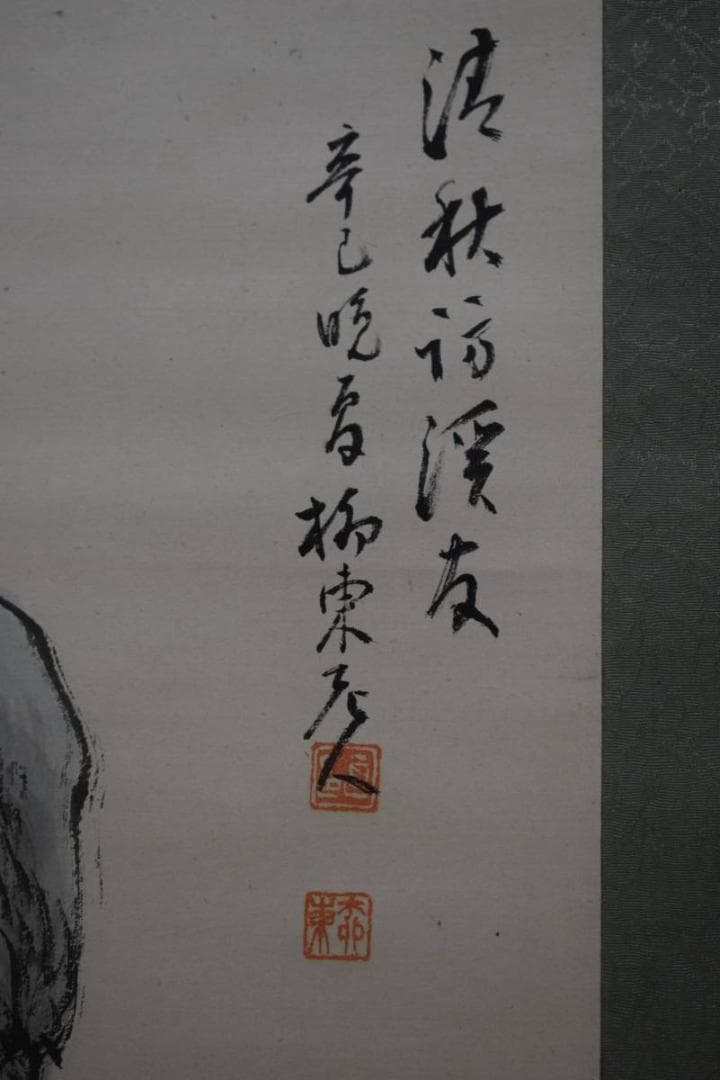 清秋訪渓友
辛巳晩夏柳東老人
柳東